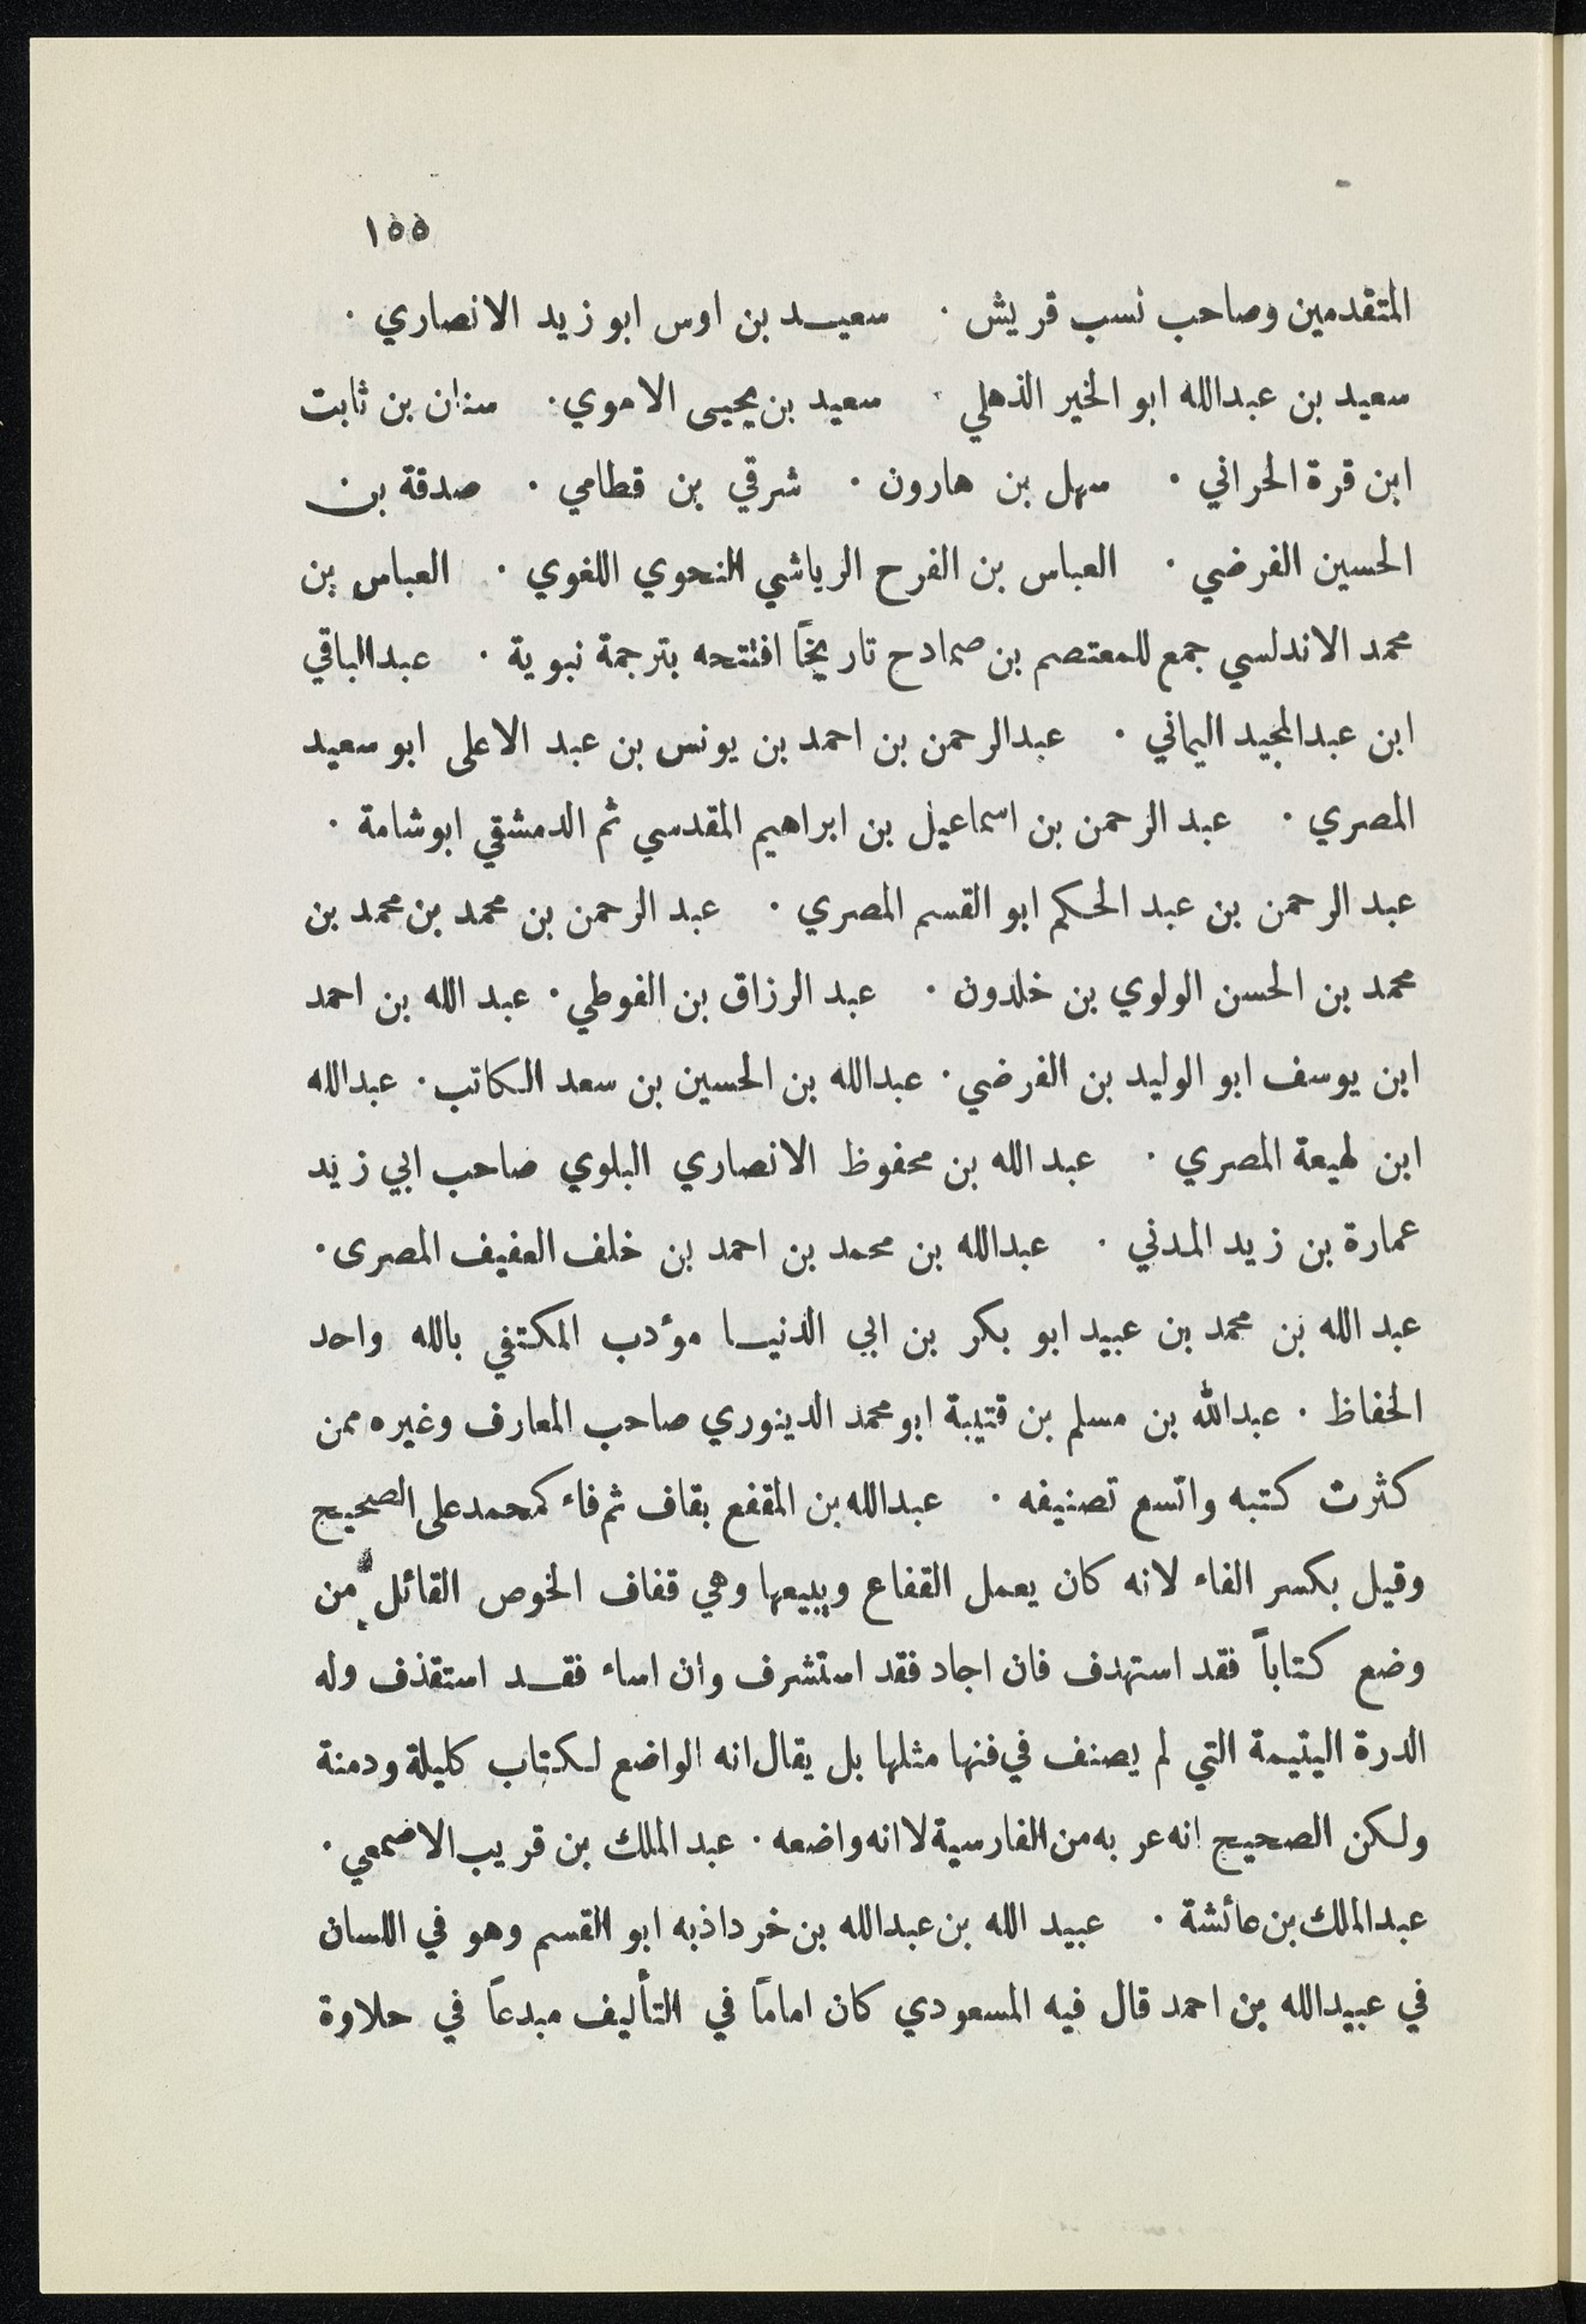 ١٥٥
المتقدمين وصاحب نسب قريش . سعيد بن اوس ابو زيد الانصاري .
سعيد بن عبدالله ابو الخير الذهلي . سعيد بن يحيى الاموي . سنان بن ثابت
ابن قرة الحراني . سهل بن هارون . شرقي بن قطامي . صدقة بن
الحسين الفرضي . العباس بن الفرح الرياشي النحوي اللغوي . العباس بن
محمد الاندلسي جمع للمعتصم بن صمادح تاريخاً افتتحه بترجمة نبوية . عبدالباقي
ابن عبدالمجيد اليماني . عبدالرحمن بن احمد بن يونس بن عبد الاعلى ابو سعيد
المصري . عبد الرحمن بن اسماعيل بن ابراهيم المقدسي ثم الدمشقي ابوشامة .
عبد الرحمن بن عبد الحكم ابو القسم المصري . عبد الرحمن بن محمد بن محمد بن
محمد بن الحسن الولوي بن خلدون . عبد الرزاق بن الفوطي . عبد الله بن احمد
ابن يوسف ابو الوليد بن الفرضي . عبدالله بن الحسين بن سعد الكاتب . عبدالله
ابن لهيعة المصري . عبد الله بن محفوظ الانصاري البلوي صاحب ابي زيد
عمارة بن زيد المدني . عبدالله بن محمد بن احمد بن خلف العفيف المصرى .
عبد الله بن محمد بن عبيد ابو بكر بن ابي الدنيا مؤدب المكتفي بالله واحد
الحفاظ . عبدالله بن مسلم بن قتيبة ابو محمد الدينوري صاحب المعارف وغيره ممن
كثرت كتبه واتسع تصنيفه . عبدالله بن المقفع بقاف ثم فاء كمحمد على الصحيح
وقيل بكسر الفاء لانه كان يعمل القفاع ويبيعها وهي قفاف الخوص القائل من
وضع كتاباً فقد استهدف فان اجاد فقد استشرف وان اساء فقد استقذف وله
الدرة اليتيمة التي لم يصنف في فنها مثلها بل يقال انه الواضع لكتاب كليلة ودمنة
ولكن الصحيح انه عربه من الفارسية لا انه واضعه . عبد الملك بن قريب الاصمعي .
عبدالملك بن عائشة . عبيد الله بن عبدالله بن خرداذبه ابو القسم وهو في اللسان
في عبيدالله بن احمد قال فيه المسعودي كان اماماً في التأليف مبدعاً في حلاوة